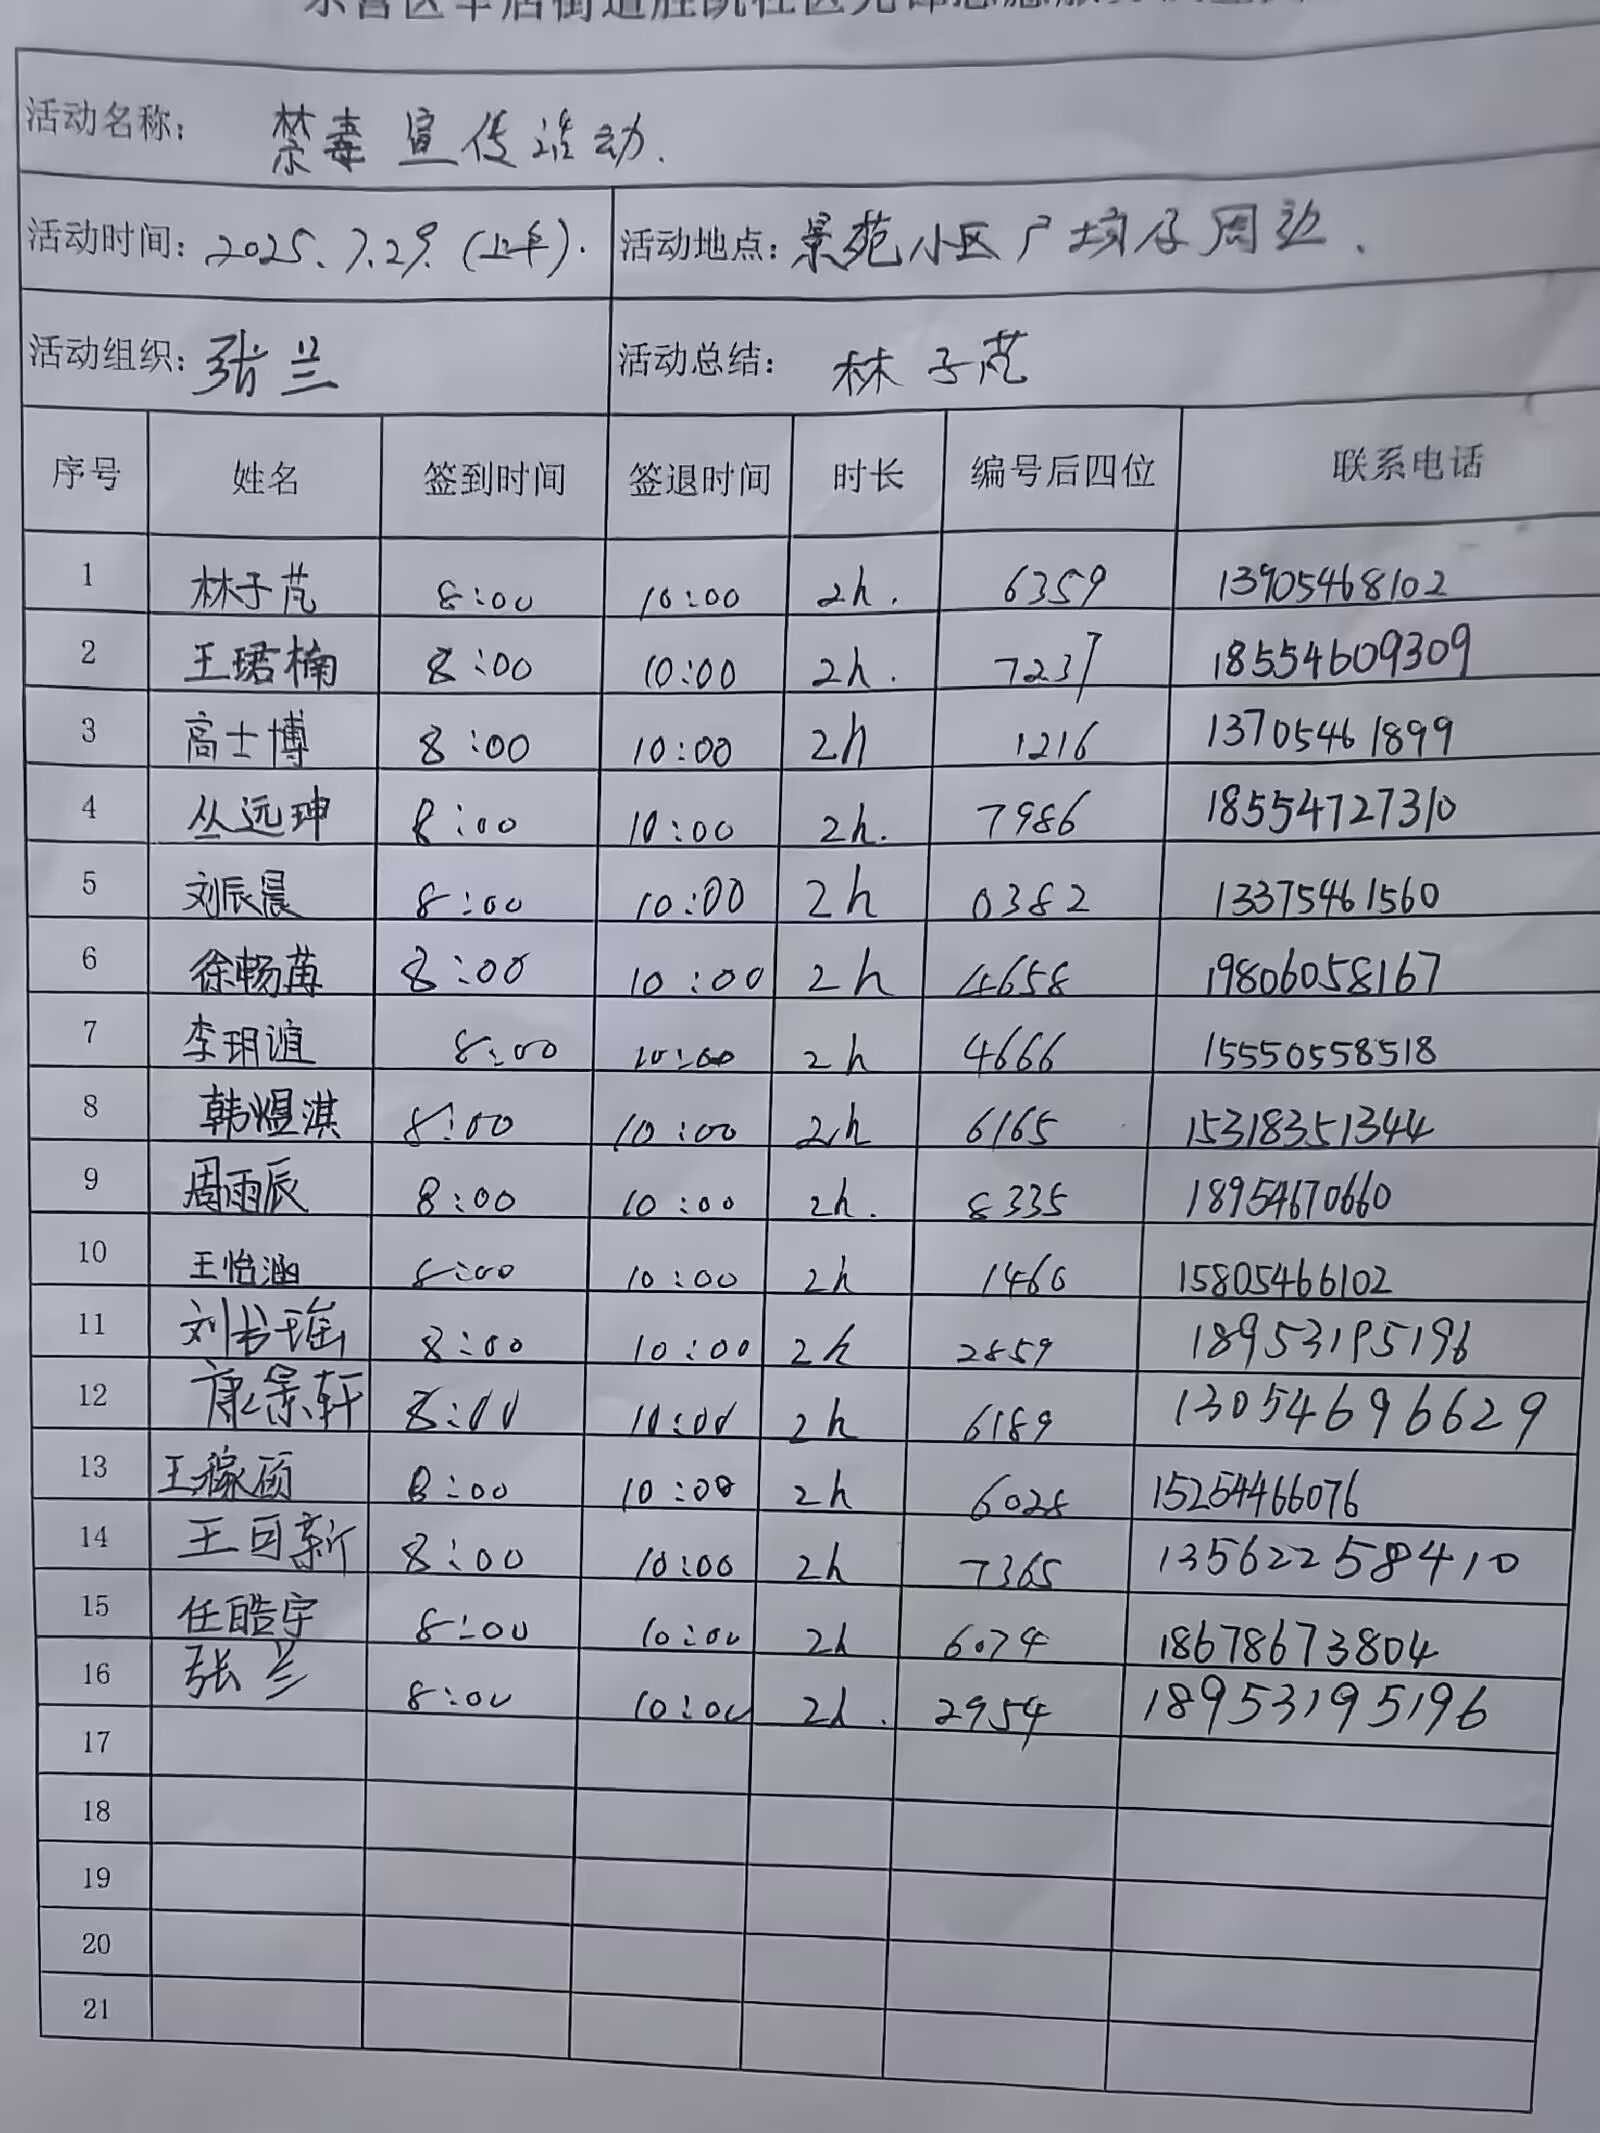 活动名称： 禁毒宣传活动.
活动时间：2025.7.29.（上午）. 活动地点：景苑小区广场及周边.
活动组织：张兰 活动总结： 林子芃
序号 姓名 签到时间 签退时间 时长 编号后四位 联系电话
1 林子芃 8:00 10:00 2h. 6359 13905468102
2 王珺楠 8:00 10:00 2h. 7237 18554609309
3 高士博 8:00 10:00 2h 1216 13705461899
4 丛远珅 8:00 10:00 2h. 7986 18554727310
5 刘辰晨 8:00 10:00 2h 0382 13375461560
6 徐畅苒 8:00 10:00 2h 4658 19806058167
7 李玥谊 8:00 10:00 2h 4666 15550558518
8 韩煜淇 8:00 10:00 2h 6165 15318351344
9 周雨辰 8:00 10:00 2h. 8335 18954670660
10 王怡涵 8:00 10:00 2h 1460 15805466102
11 刘书瑶 8:00 10:00 2h 2859 18953195196
12 康景轩 8:00 10:00 2h 6189 13054696629
13 王稼硕 8:00 10:00 2h 6028 15254466076
14 王目新 8:00 10:00 2h 7365 13562258410
15 任皓宇 8:00 10:00 2h 6074 18678673804
16 张兰 8:00 10:00 2h. 2954 18953195196
17
18
19
20
21